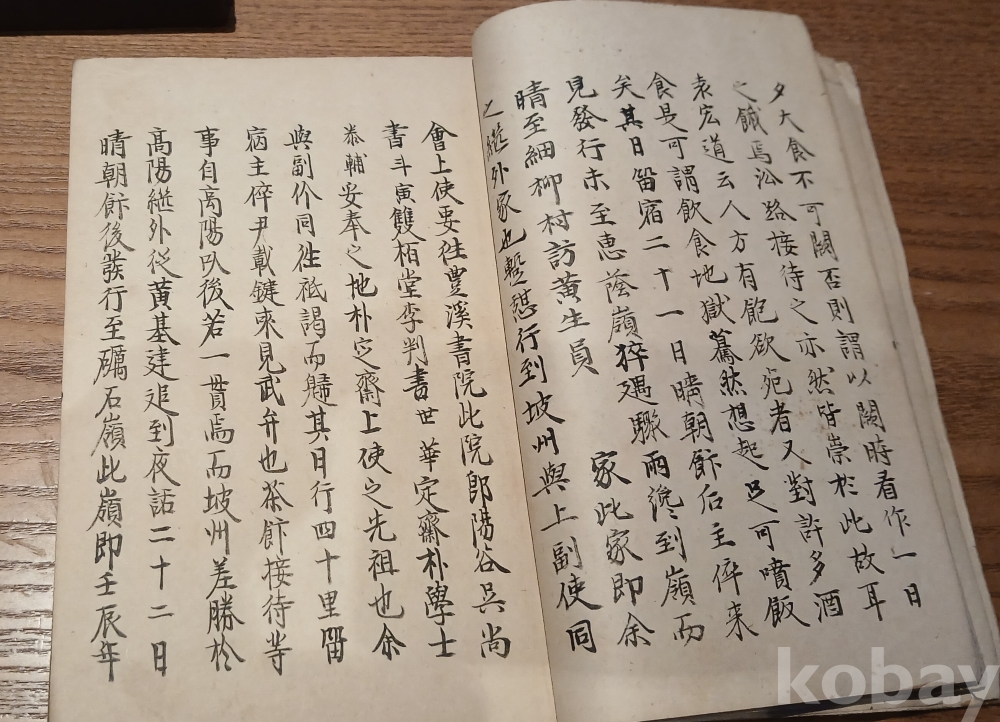 夕大食不可闕否則謂以闕時看作一日
之餓焉沿路接待之亦然皆崇於此故耳
袁宏道云人方有飽欲死者又對許多酒
食是可謂飲食地獄驀然想起足可噴飯
矣其日留宿二十一日晴朝飰后主倅来
見發行未至惠蔭嶺猝遇驟雨纔到嶺而
晴至細柳村訪黄生員家此家即余
之繼外家也暫憇行到坡州與上副使同
會上使要往豊溪書院此院即陽谷吳尚
書斗寅雙栢堂李判書世華定齋朴學士
泰輔妥奉之地朴定齋上使之先祖也余
與副价同往祗謁而歸其日行四十里留
宿主倅尹載鍵来見武弁也茶飰接待等
事自高陽以後若一貫焉而坡州差勝於
高陽繼外從黄基建追到夜話二十二日
晴朝飰後發行至礪石嶺此嶺即壬辰年
kobay